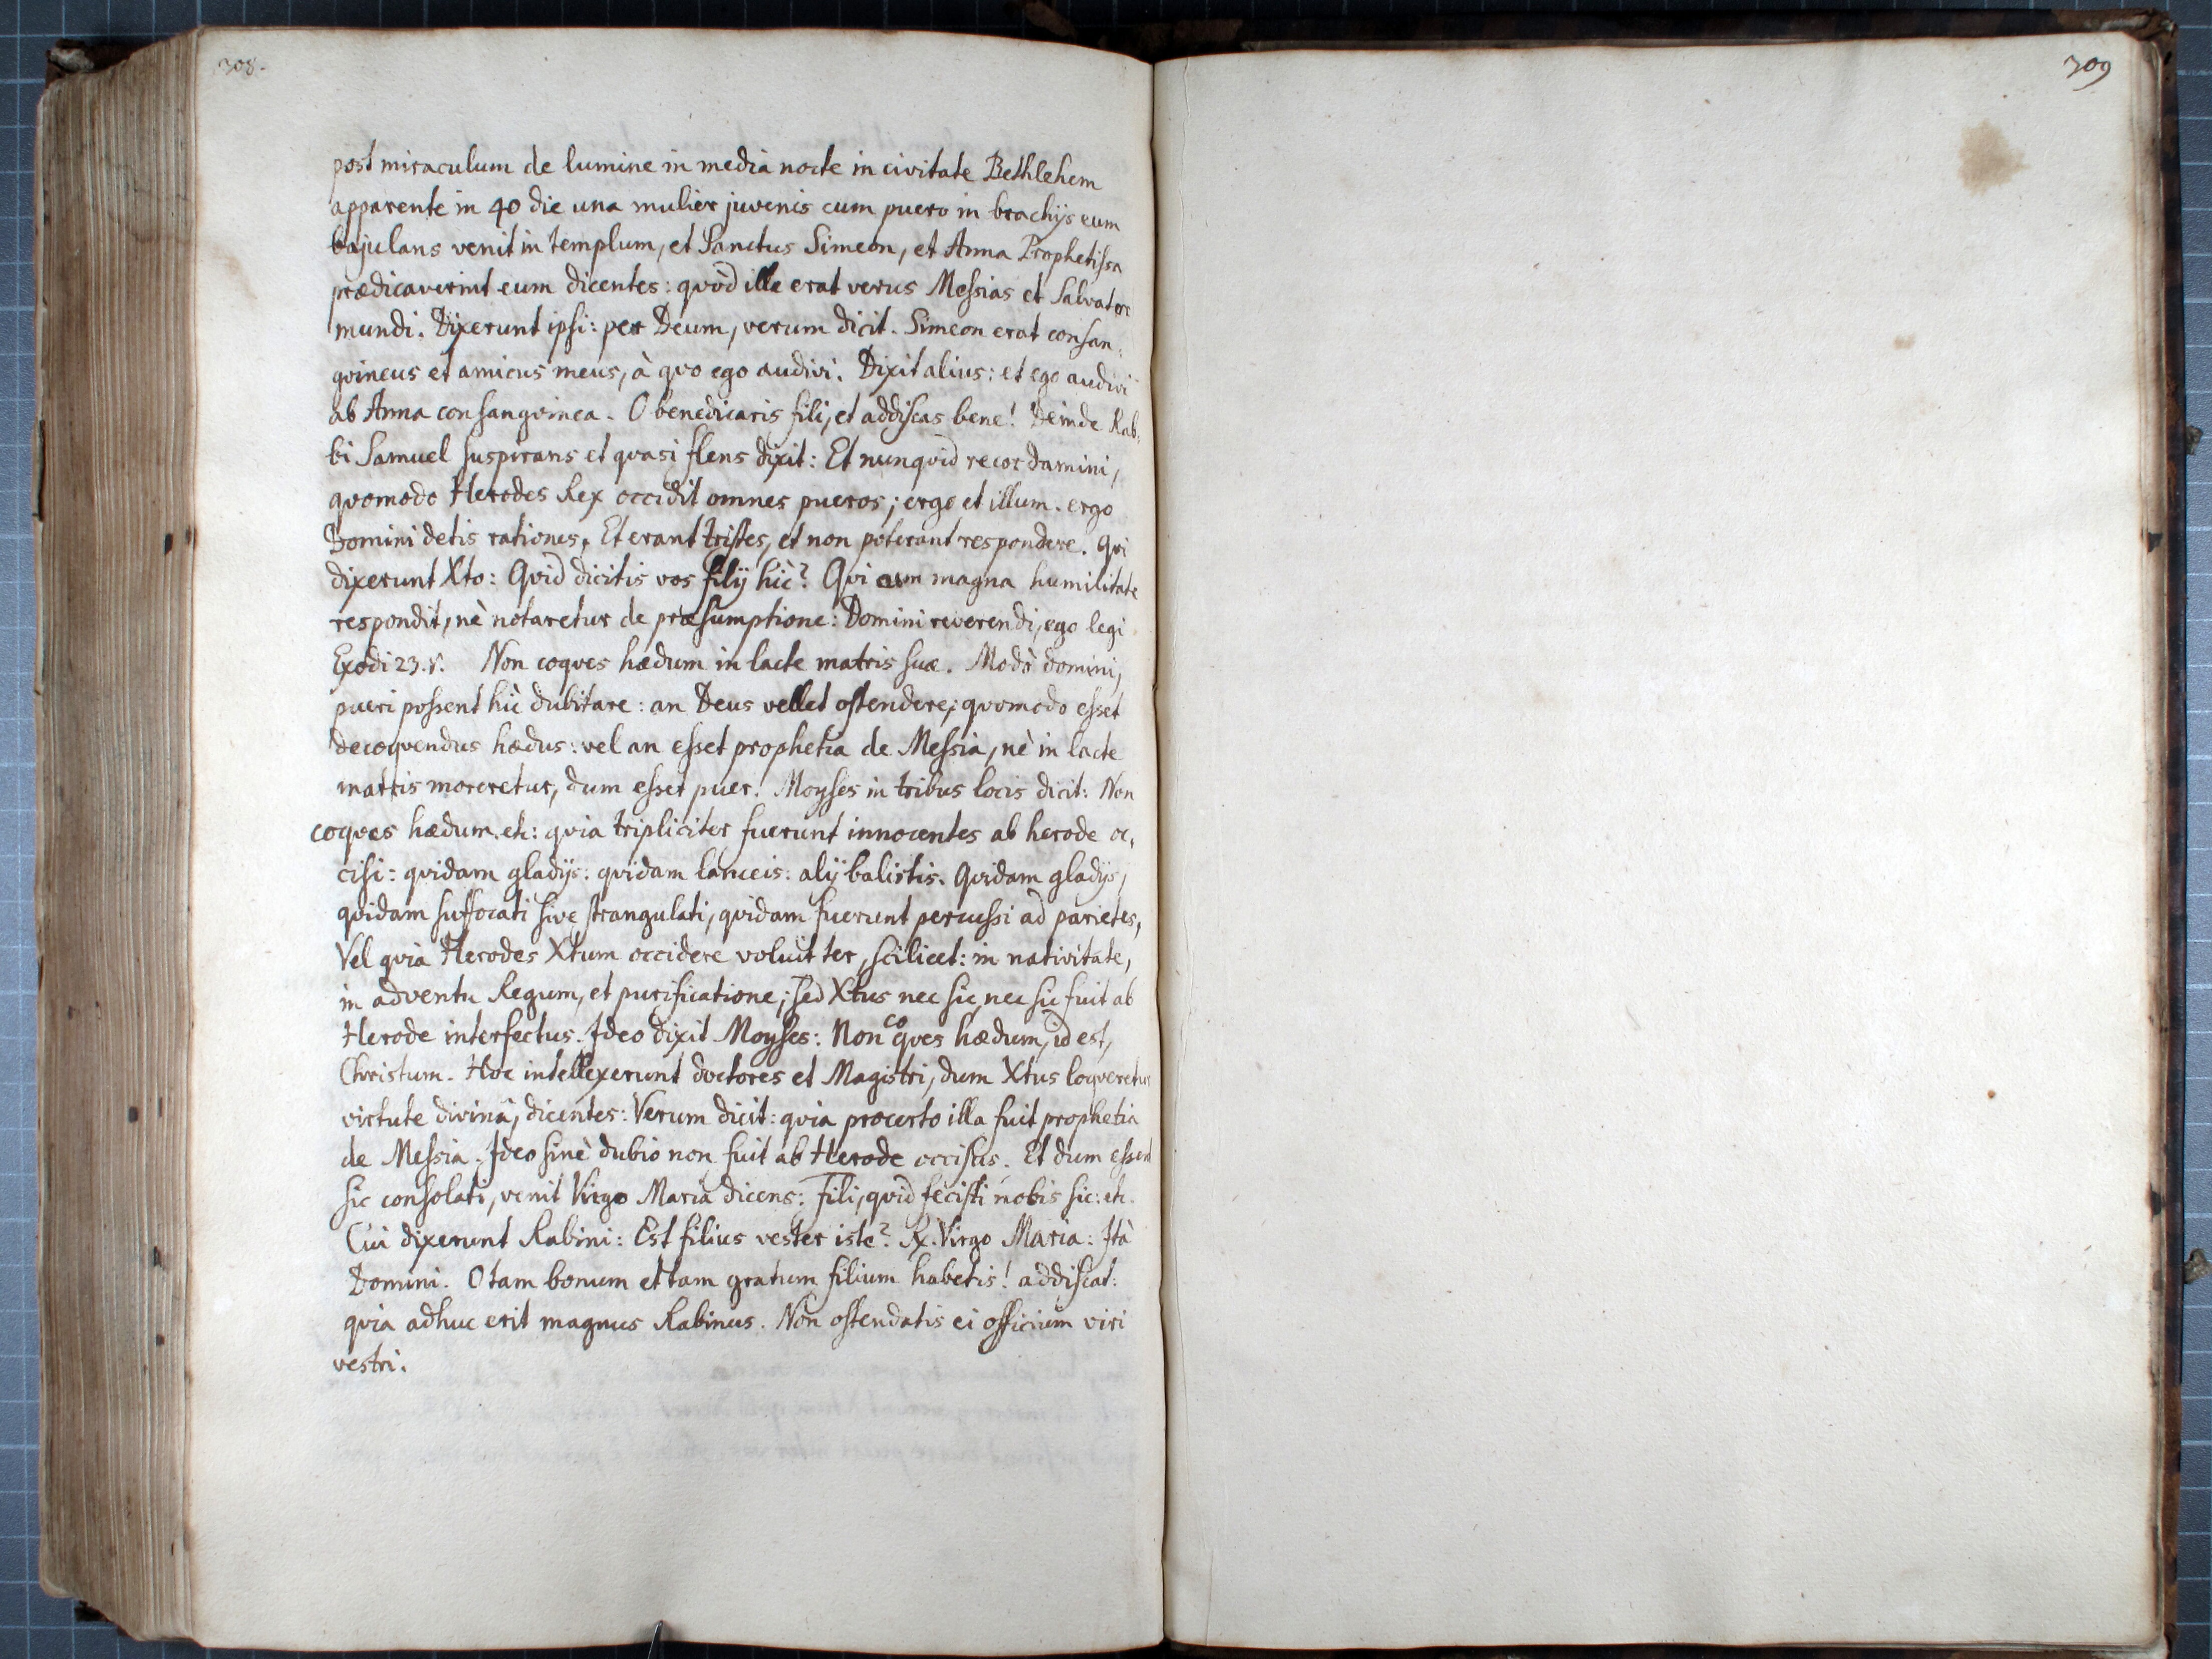 308.
post miraculum de lumine in media nocte in civitate Bethlehem
apparente in 40 die una mulier juvenis cum puero in brachijs eum
bajulans venit in templum, et Sanctus Simeon, et Anna Prophetissa
prædicaverint eum dicentes: quòd ille erat verus Messias et Salvator
mundi. Dixerunt ipsi: per Deum, verum dicit. Simeon erat consan,
gvineus et amicus meus, à qvo ego audivi. Dixit alius: et ego audivi
ab Anna consangvinea. O benedicaris fili, et addiscas bene! Deinde Rab,
bi Samuel suspirans et qvasi flens dixit: Et nunqvid recordamini,
qvomodo Herodes Rex occidit omnes pueros; ergo et illum. ergo
Domini detis rationes. Et erant tristes, et non poterant respondere. Qvi
dixerunt Xto: Qvid dicitis vos filij hìc? Qvi cum magna humilitate
respondit, nè notaretur de præsumptione: Domini reverendi, ego legi
Exodi 23. v. Non coqves hædum in lacte matris suæ. Modò domini,
pueri possent hìc dubitare: an Deus vellet ostendere, qvomodo esset
decoqvendus hædus: vel an esset prophetia de Messia, nè in lacte
matris moreretur, dum esset puer. Moyses in tribus locis dicit: Non
coqves hædum. etc: qvia tripliciter fuerunt innocentes ab herode oc,
cisi: qvidam gladijs: qvidam lanceis: alij balistis. Qvidam gladijs,
qvidam suffocati sive strangulati, qvidam fuerunt percussi ad parietes,
Vel qvia Herodes Xtum occidere voluit ter, scilicet: in nativitate,
in adventu Regum, et purificatione; sed Xtus nec sic, nec sic fuit ab
Herode interfectus. Ideo dixit Moyses: Non coqves hædum, id est,
Christum. Hoc intellexerunt doctores et Magistri, dum Xtus loqveretur
virtute divinâ, dicentes: Verum dicit: qvia procerto illa fuit prophetia
de Messia. Ideo sinè dubio non fuit ab Herode occisus. Et dum essent
sic consolati, venit Virgo Maria dicens: Fili, qvid fecisti nobis sic: etc.
Cui dixerunt Rabini: Est filius vester iste? Rx. Virgo Maria: Ità
Domini. O tam bonum et tam gratum filium habetis! addiscat:
qvia adhuc erit magnus Rabinus. Non ostendatis ei officium viri
vestri.
309